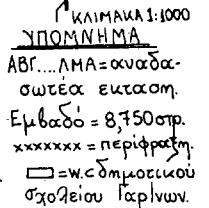 ΚΛΙΜΑΚΑ 1:1000
ΥΠΟΜΝΗΜΑ
ΑΒΓ....ΛΜΑ=αναδα-
σωτέα εκταση.
Εμβαδό=8,750στρ.
xxxxxxx=περίφραξη.
=w.c δημοτικού
σχολείου Γαρίνων.